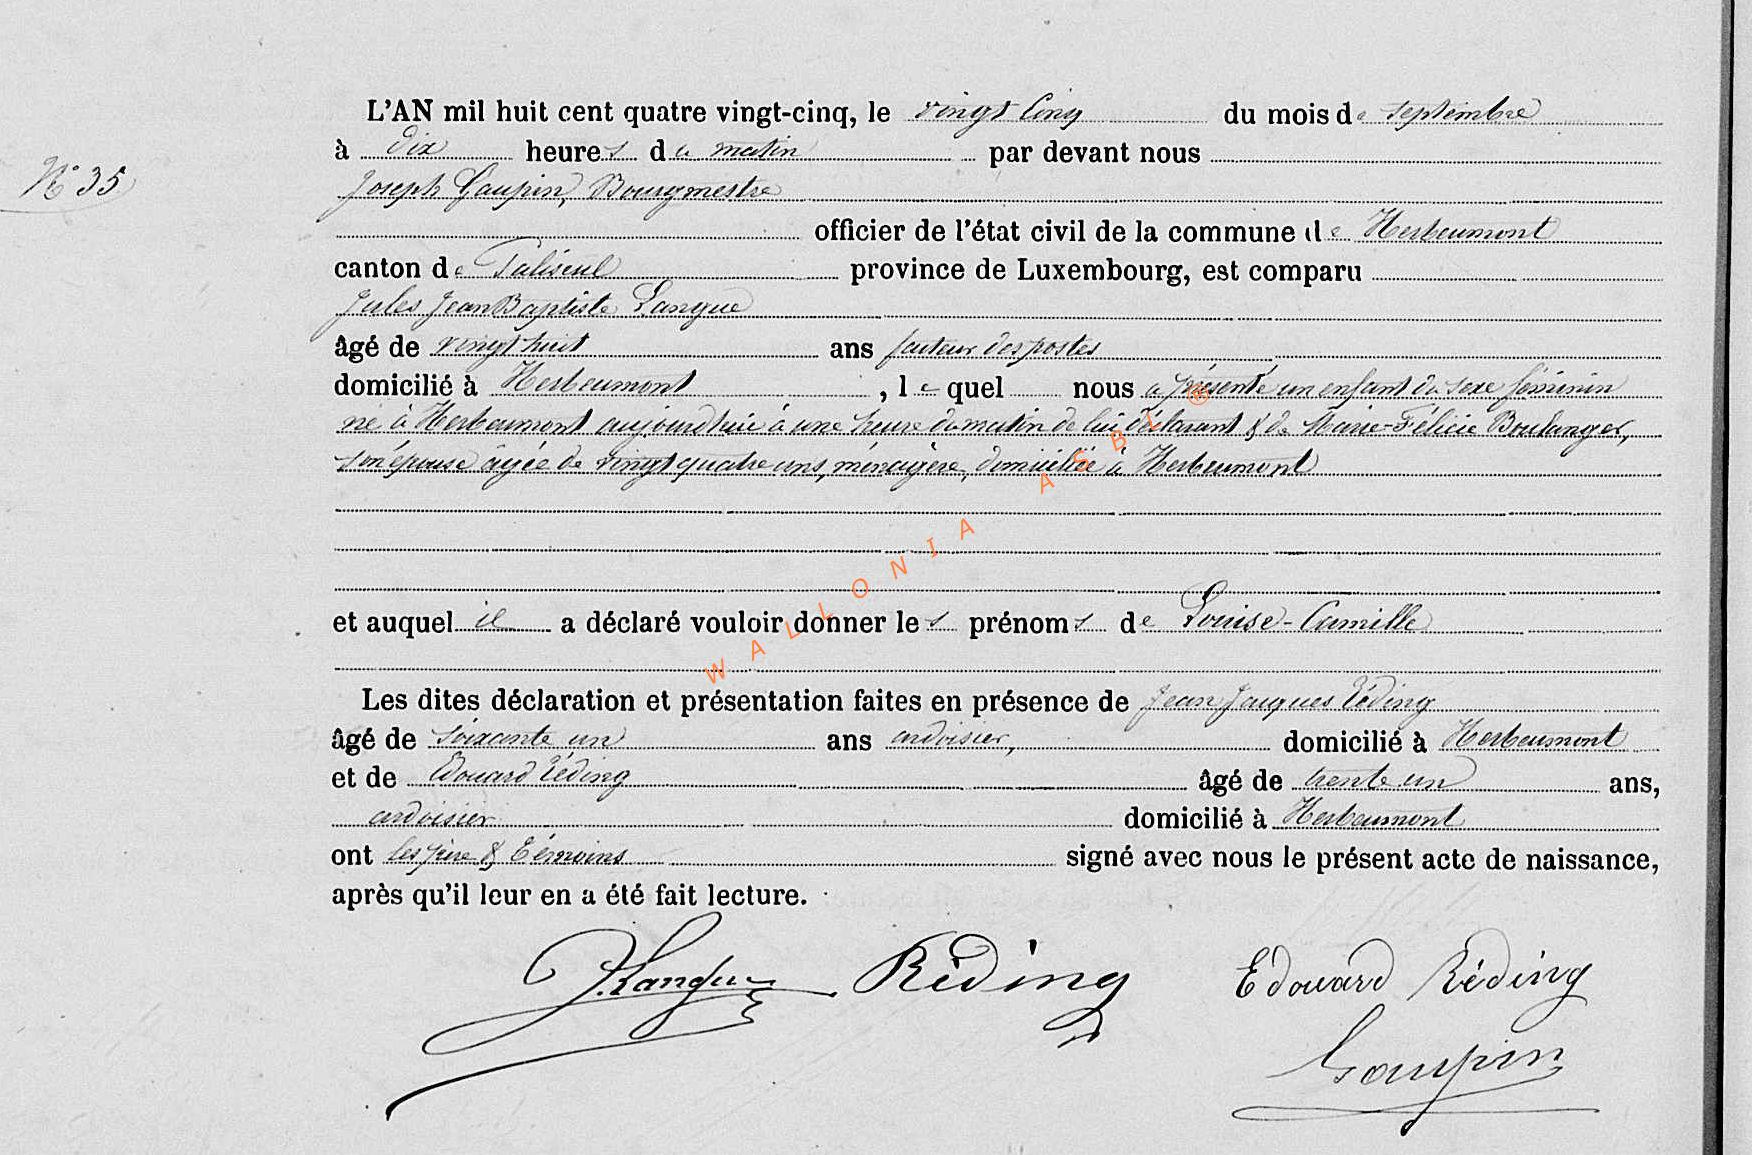 L'AN mil huit cent quatre vingt-cinq, le vingt cinq du mois de septembre
N° 35
à dix heures du matin par devant nous
Joseph Gaupin, Bourgmestre
officier de l'état civil de la commune de Herbeumont
canton de Paliseul province de Luxembourg, est comparu
Jules Jean Baptiste Langue
âgé de vingt huit ans facteur des postes
domicilié à Herbeumont, lequel nous a présenté un enfant du sexe féminin
né à Herbeumont aujourd'hui à une heure du matin de lui déclarant & de Marie-Félicie Boulanger,
son épouse âgée de vingt quatre ans, ménagère, domiciliée à Herbeumont
et auquel il a déclaré vouloir donner les prénoms de Louise-Camille
Les dites déclaration et présentation faites en présence de Jean Jacques Réding
âgé de soixante un ans ardoisier, domicilié à Herbeumont
et de Edouard Réding âgé de trente un ans,
ardoisier domicilié à Herbeumont
ont les père & témoins signé avec nous le présent acte de naissance,
après qu'il leur en a été fait lecture.
J. Langue Réding Edouard Réding
Gaupin
WALLONIA ASBL ®